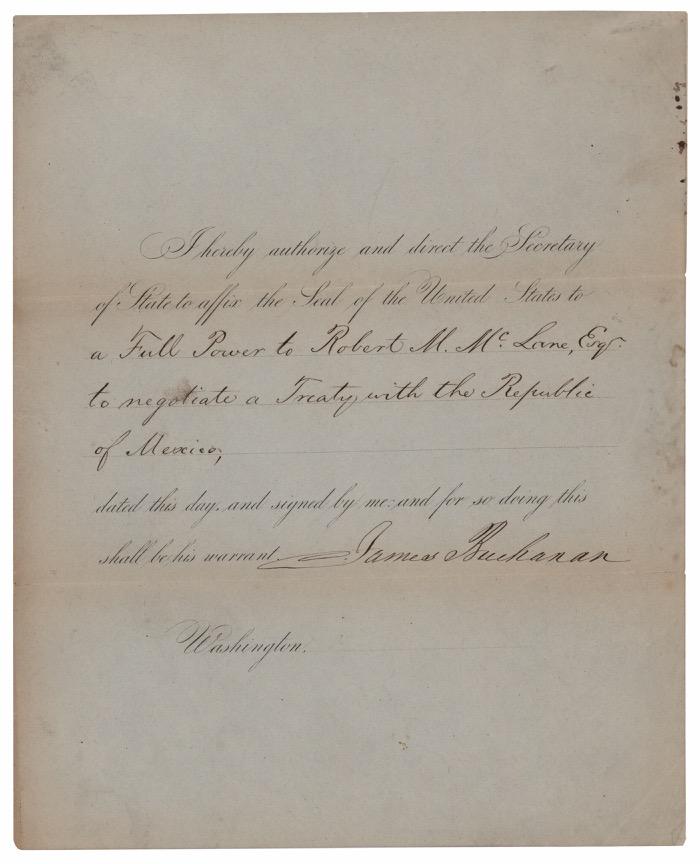 I hereby authorize and direct the Secretary
of State to affix the Seal of the United States to
a Full Power to Robert M. Mc. Lane, Esqr.
to negotiate a Treaty with the Republic
of Mexico;
dated this day, and signed by me: and for so doing this
shall be his warrant. James Buchanan
Washington.